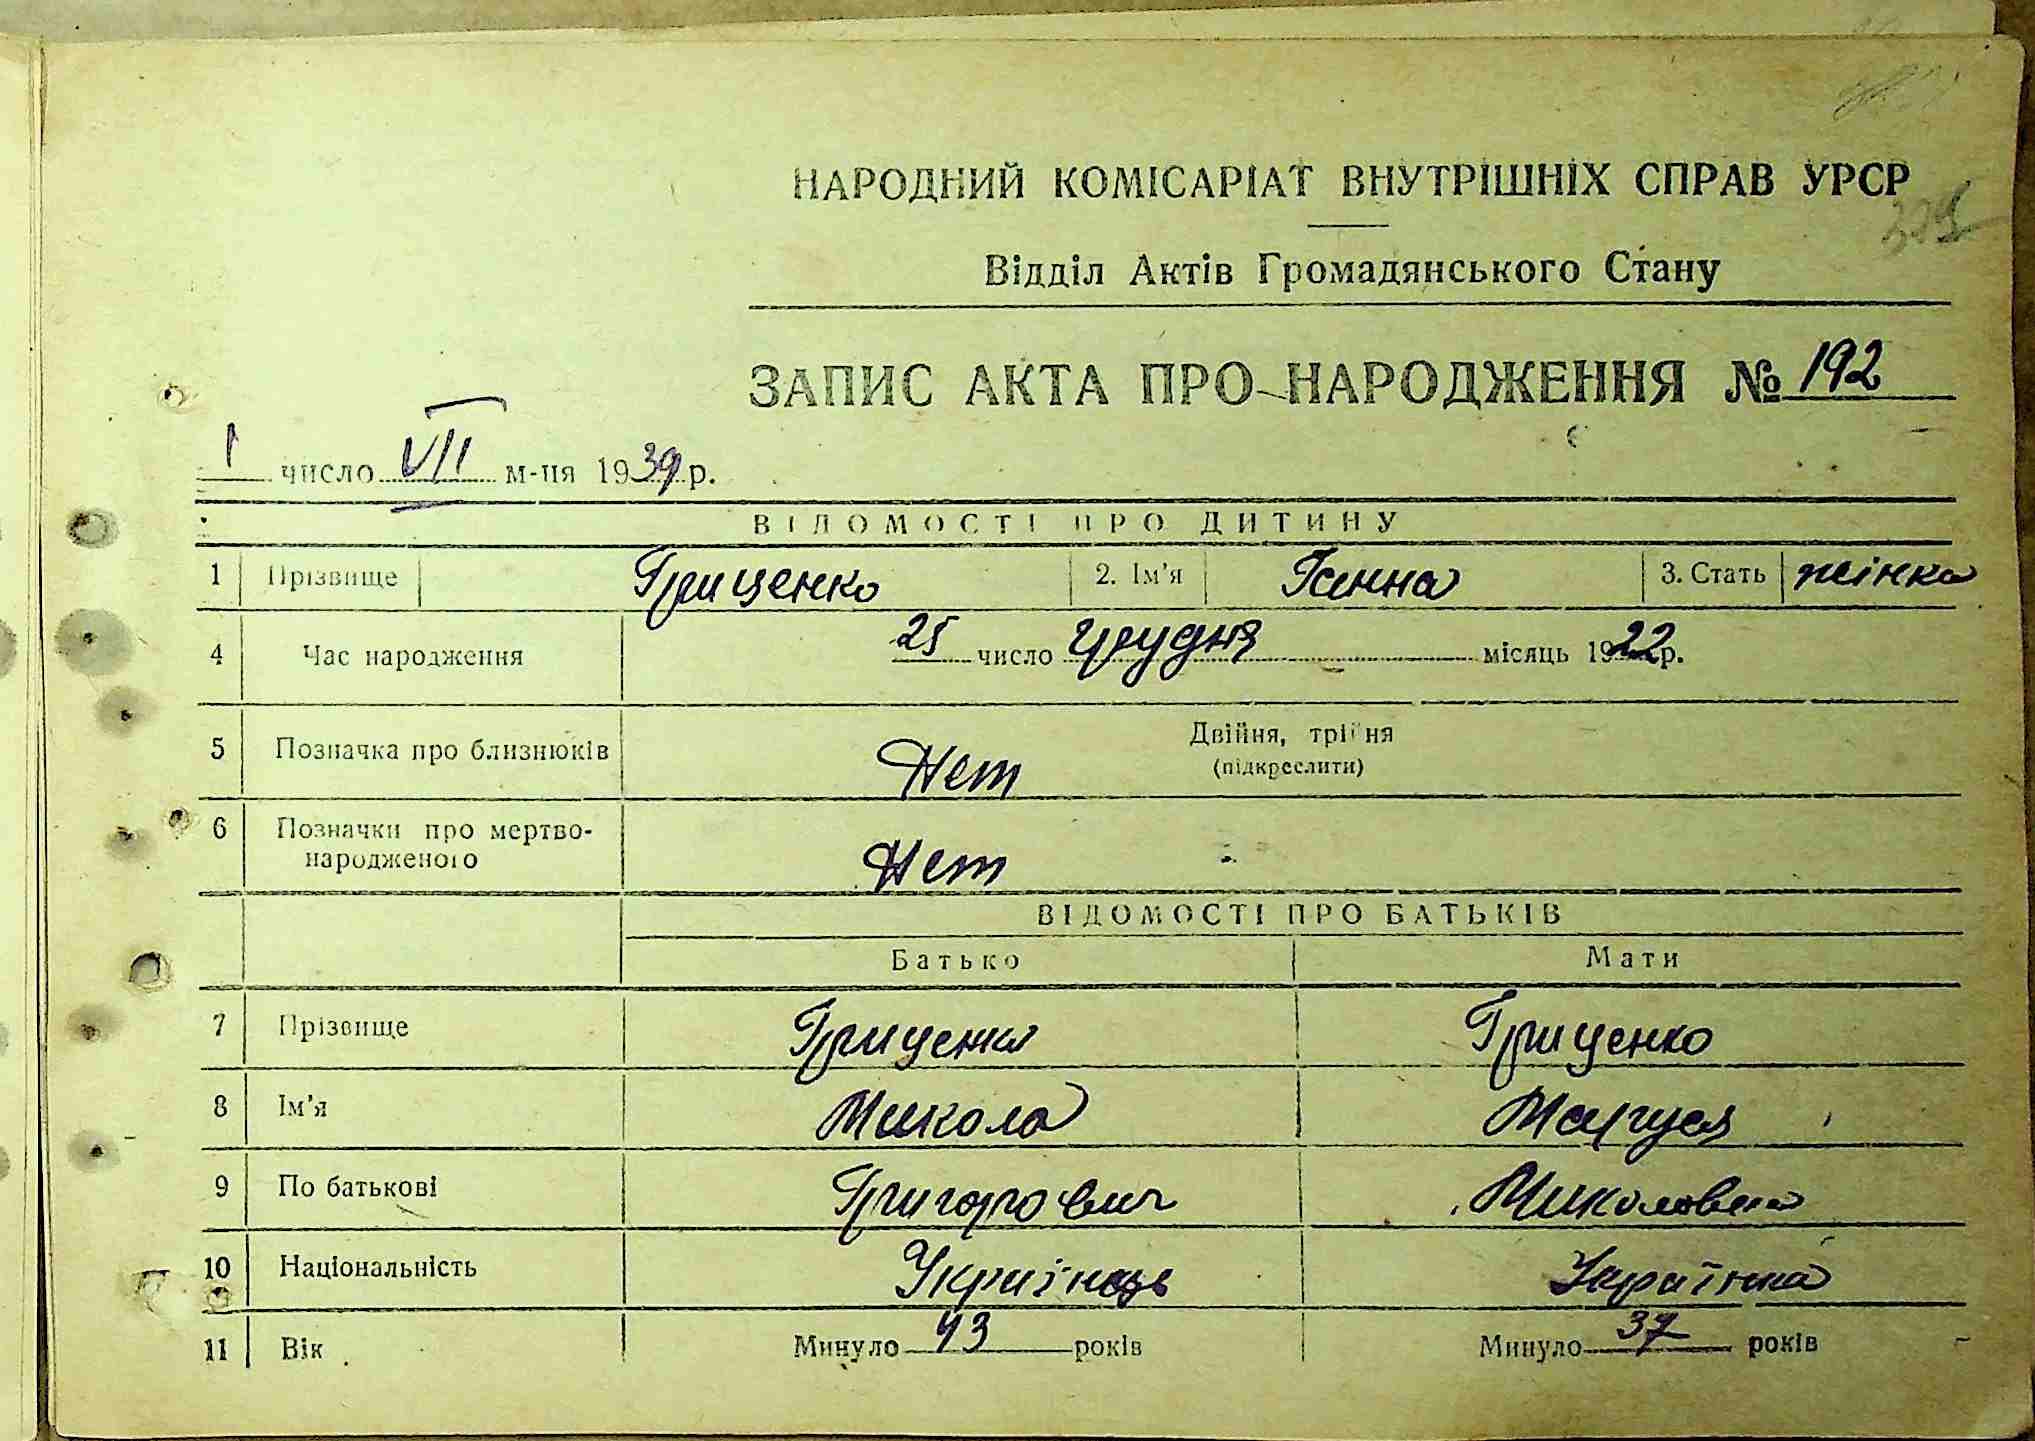 НАРОДНИЙ КОМІСАРІАТ ВНУТРІШНІХ СПРАВ УРСР
Відділ Актів Громадянського Стану
ЗАПИС АКТА ПРО НАРОДЖЕННЯ № 192
1 число VII м-ця 1939 р.
ВІДОМОСТІ ПРО ДИТИНУ
1 Прізвище Гриценко 2. Ім'я Ганна 3. Стать жінка
4 Час народження 25 число грудня місяць 1922 р.
5 Позначка про близнюків Нет Двійня, трійня
(підкреслити)
6 Позначки про мертво-
народженого Нет
ВІДОМОСТІ ПРО БАТЬКІВ
Батько Мати
7 Прізвище Гриценко Гриценко
8 Ім'я Микола Маруся
9 По батькові Григорович Миколовна
10 Національність Українець Українка
11 Вік Минуло 43 років Минуло 37 років